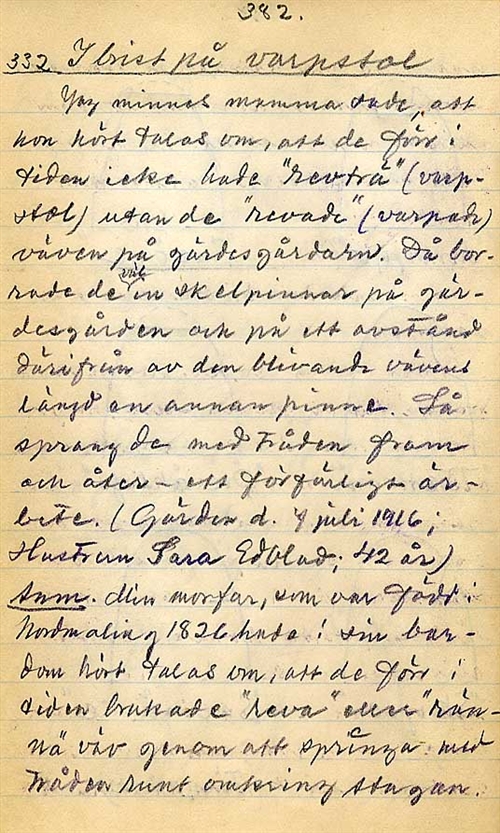 382.
332 I brist på varpstol
Jag minnes mamma sade, att
hon hört talas om, att de förr i
tiden icke hade "revträ" (varp-
stol) utan de "revade" (varpade)
väven på gärdesgårdarn. Då bor-
rade de väl in skelpinnar på gär-
desgården och på ett avstånd
därifrån av den blivande vävens
längd en annan pinne. Så
sprang de med tråden fram
och åter - ett förfärligt är-
bete. (Gärden d. 7 juli 1916;
Hustrun Sara Edblad; 42 år)
Anm. Min morfar, som var född i
Nordmaling 1826 hade i sin bar-
dom hört talas om, att de förr i
tiden brukade "reva" eller "rän-
nä" väv genom att springa med
tråden runt omkring stugan.